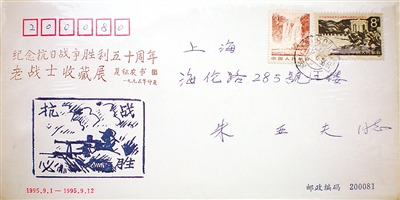 200080
纪念抗日战争胜利五十周年
老战士收藏展 夏征农书
一九九五年仲夏
上海
海伦路285號三樓
朱亚夫 同志
抗战
必胜
8
中国人民邮政
1995.9.1—1995.9.12
邮政编码 200081